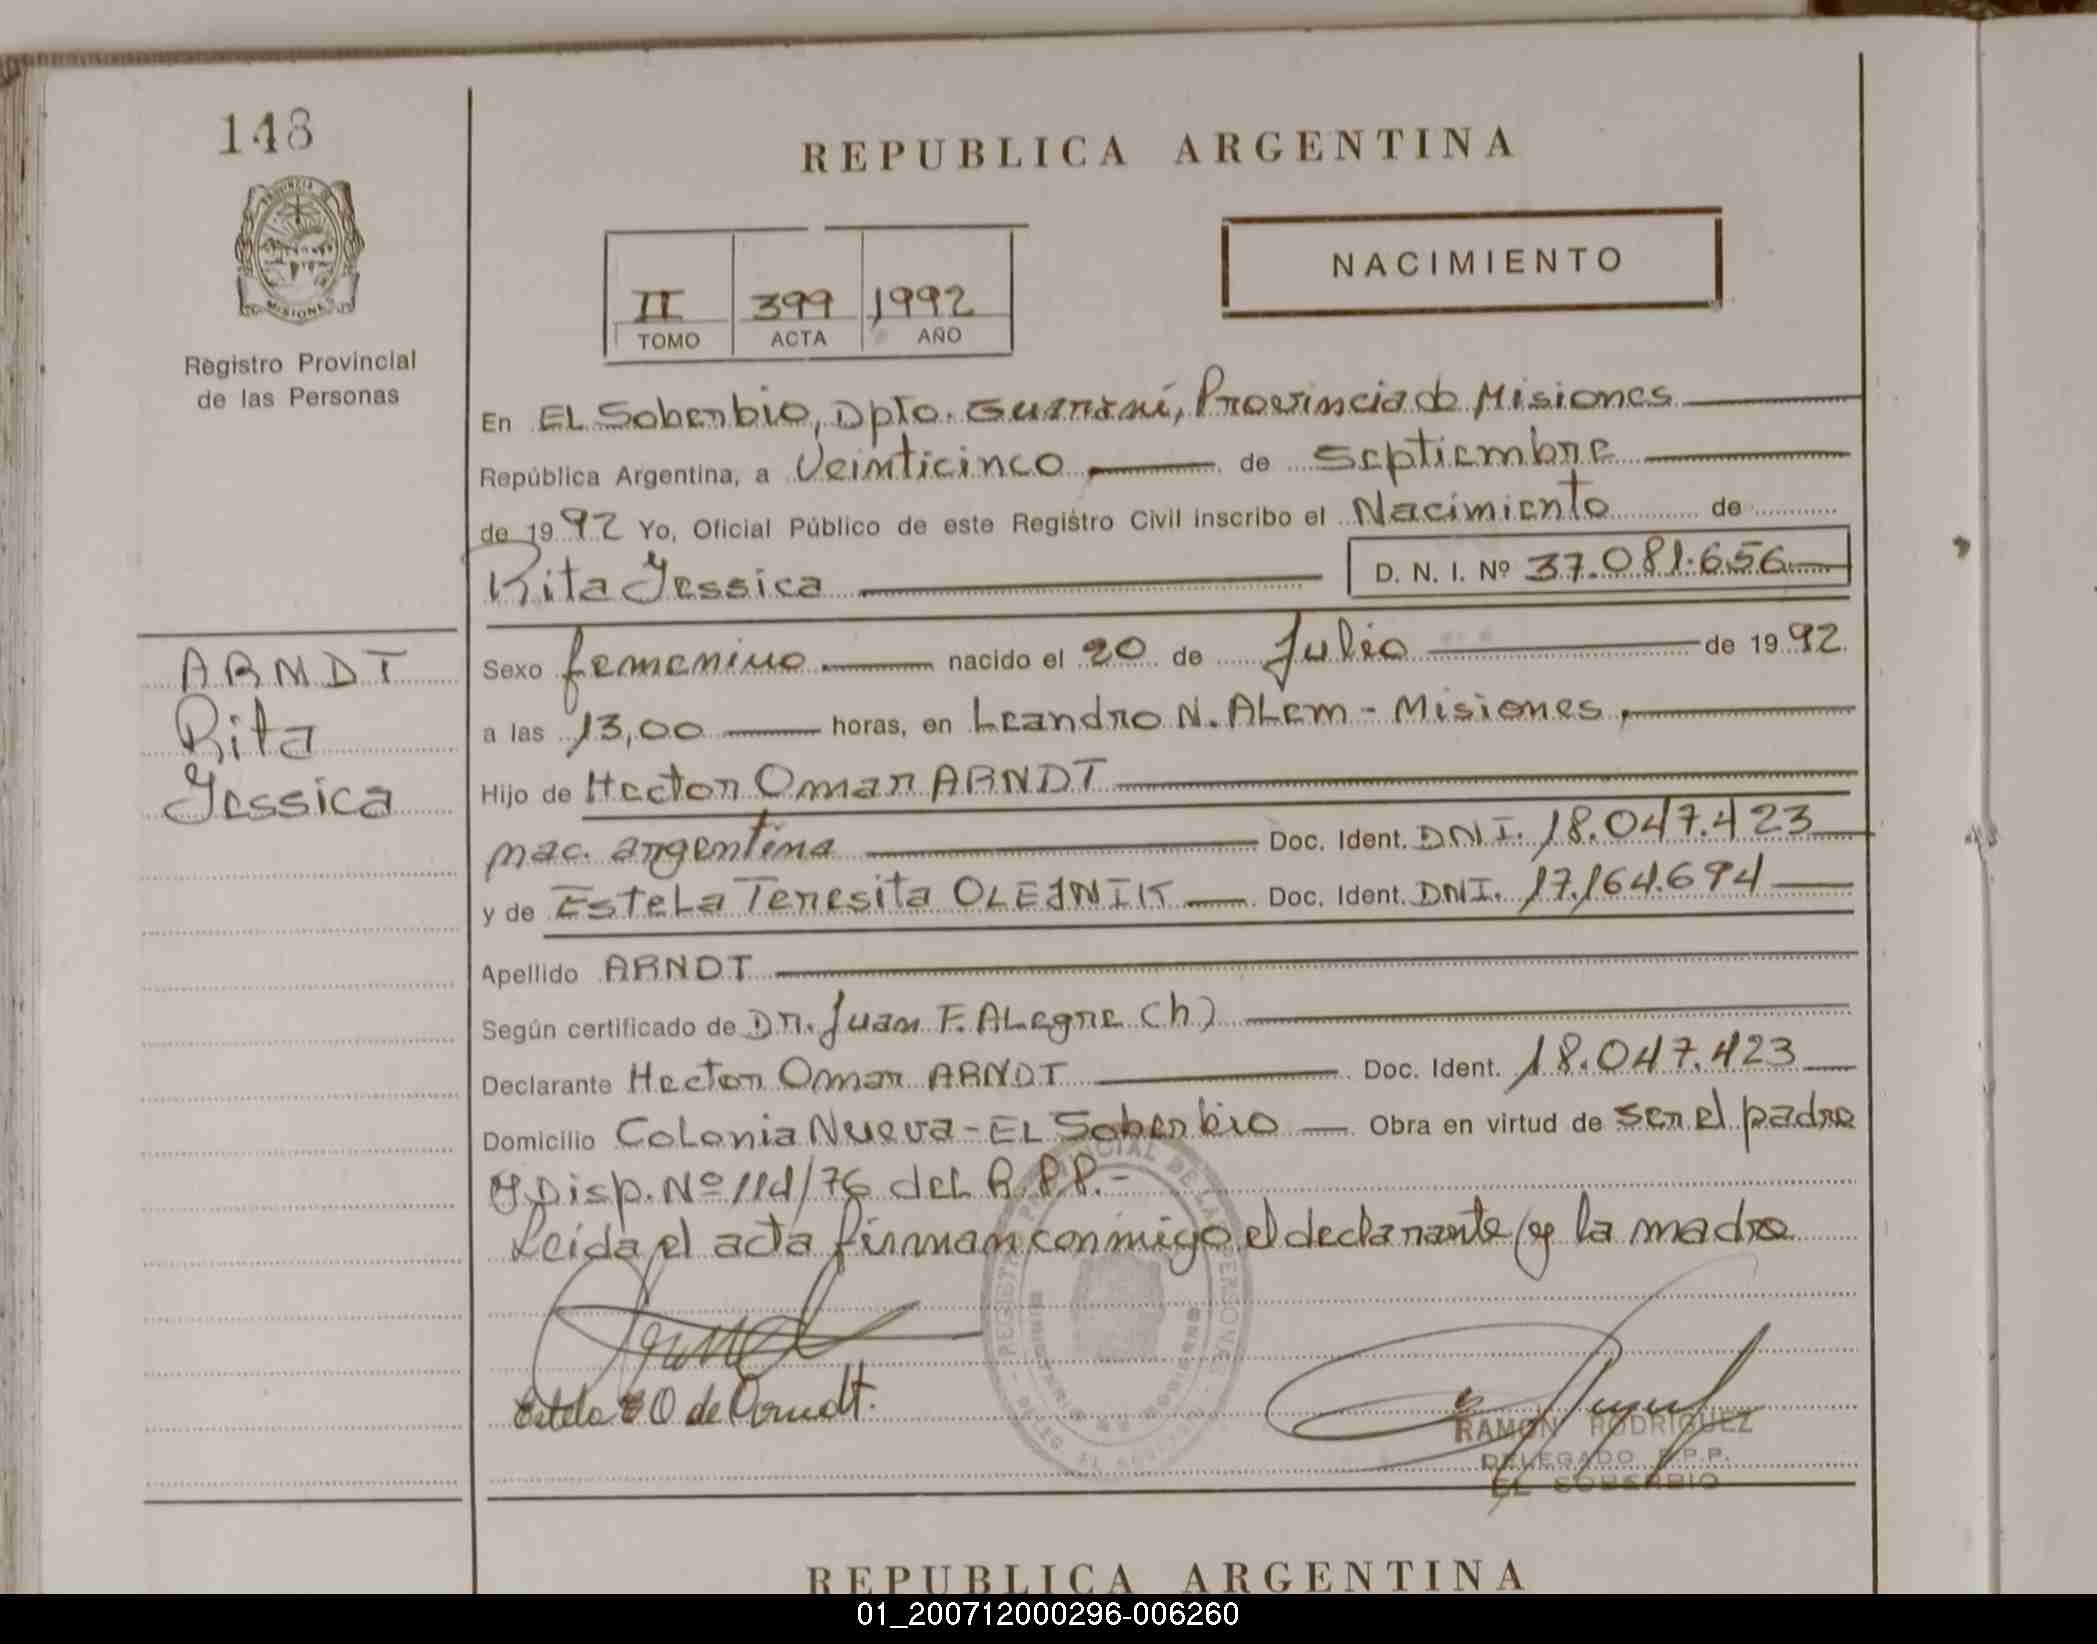 148
REPUBLICA ARGENTINA
PROVINCIA DE
MISIONES
Registro Provincial
de las Personas
NACIMIENTO
II 399 1992
TOMO ACTA AÑO
En EL Soberbio, Dpto. Guaraní, Provincia de Misiones
República Argentina, a Veinticinco de Septiembre
de 1992 Yo, Oficial Público de este Registro Civil inscribo el Nacimiento de
Rita Jessica D. N. I. Nº 37.081.656
ARNDT
Rita
Jessica
Sexo femenino nacido el 20 de Julio de 1992
a las 13,00 horas, en Leandro N. ALem - Misiones,
Hijo de Hector Omar ARNDT
nac. argentina Doc. Ident. DNI. 18.047.423
y de EsteLa Teresita OLEJNIK Doc. Ident. DNI. 17.164.694
Apellido ARNDT
Según certificado de Dr. Juan F. ALegre (h)
Declarante Hector Omar ARNDT Doc. Ident. 18.047.423
Domicilio CoLonia Nueva - EL Soberbio Obra en virtud de ser el padre
y Disp. Nº 114/76 deL R.P.P.-
Leida el acta firman conmigo el declarante y la madre
Estela O de Arndt.
RAMON RODRIGUEZ
DELEGADO R.P.P.
EL SOBERBIO
REPUBLICA ARGENTINA
01_200712000296-006260